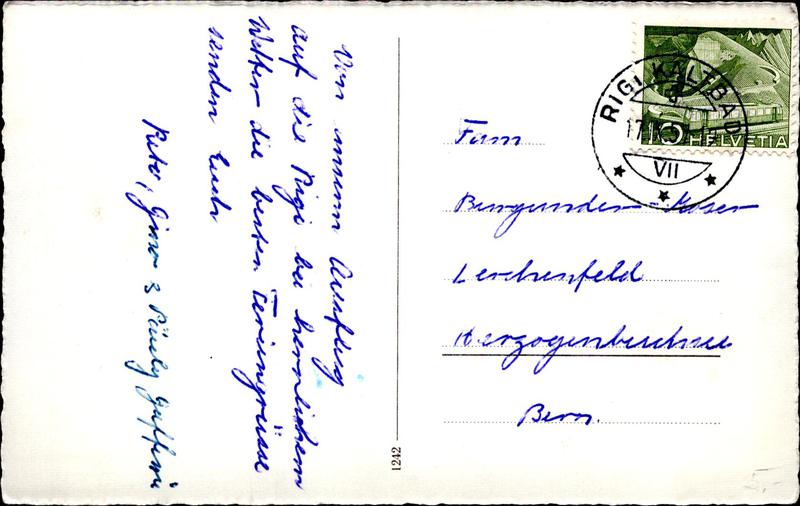 Von unserm Ausflug
auf die Rigi bei herrlichem
Wetter die besten Feriengrüsse
senden Euch
1242
RIGI KALTBAD
VII
HELVETIA
Fam
Burgunder-Moser
Lerchenfeld
Herzogenbuchsee
Bern.
5.-